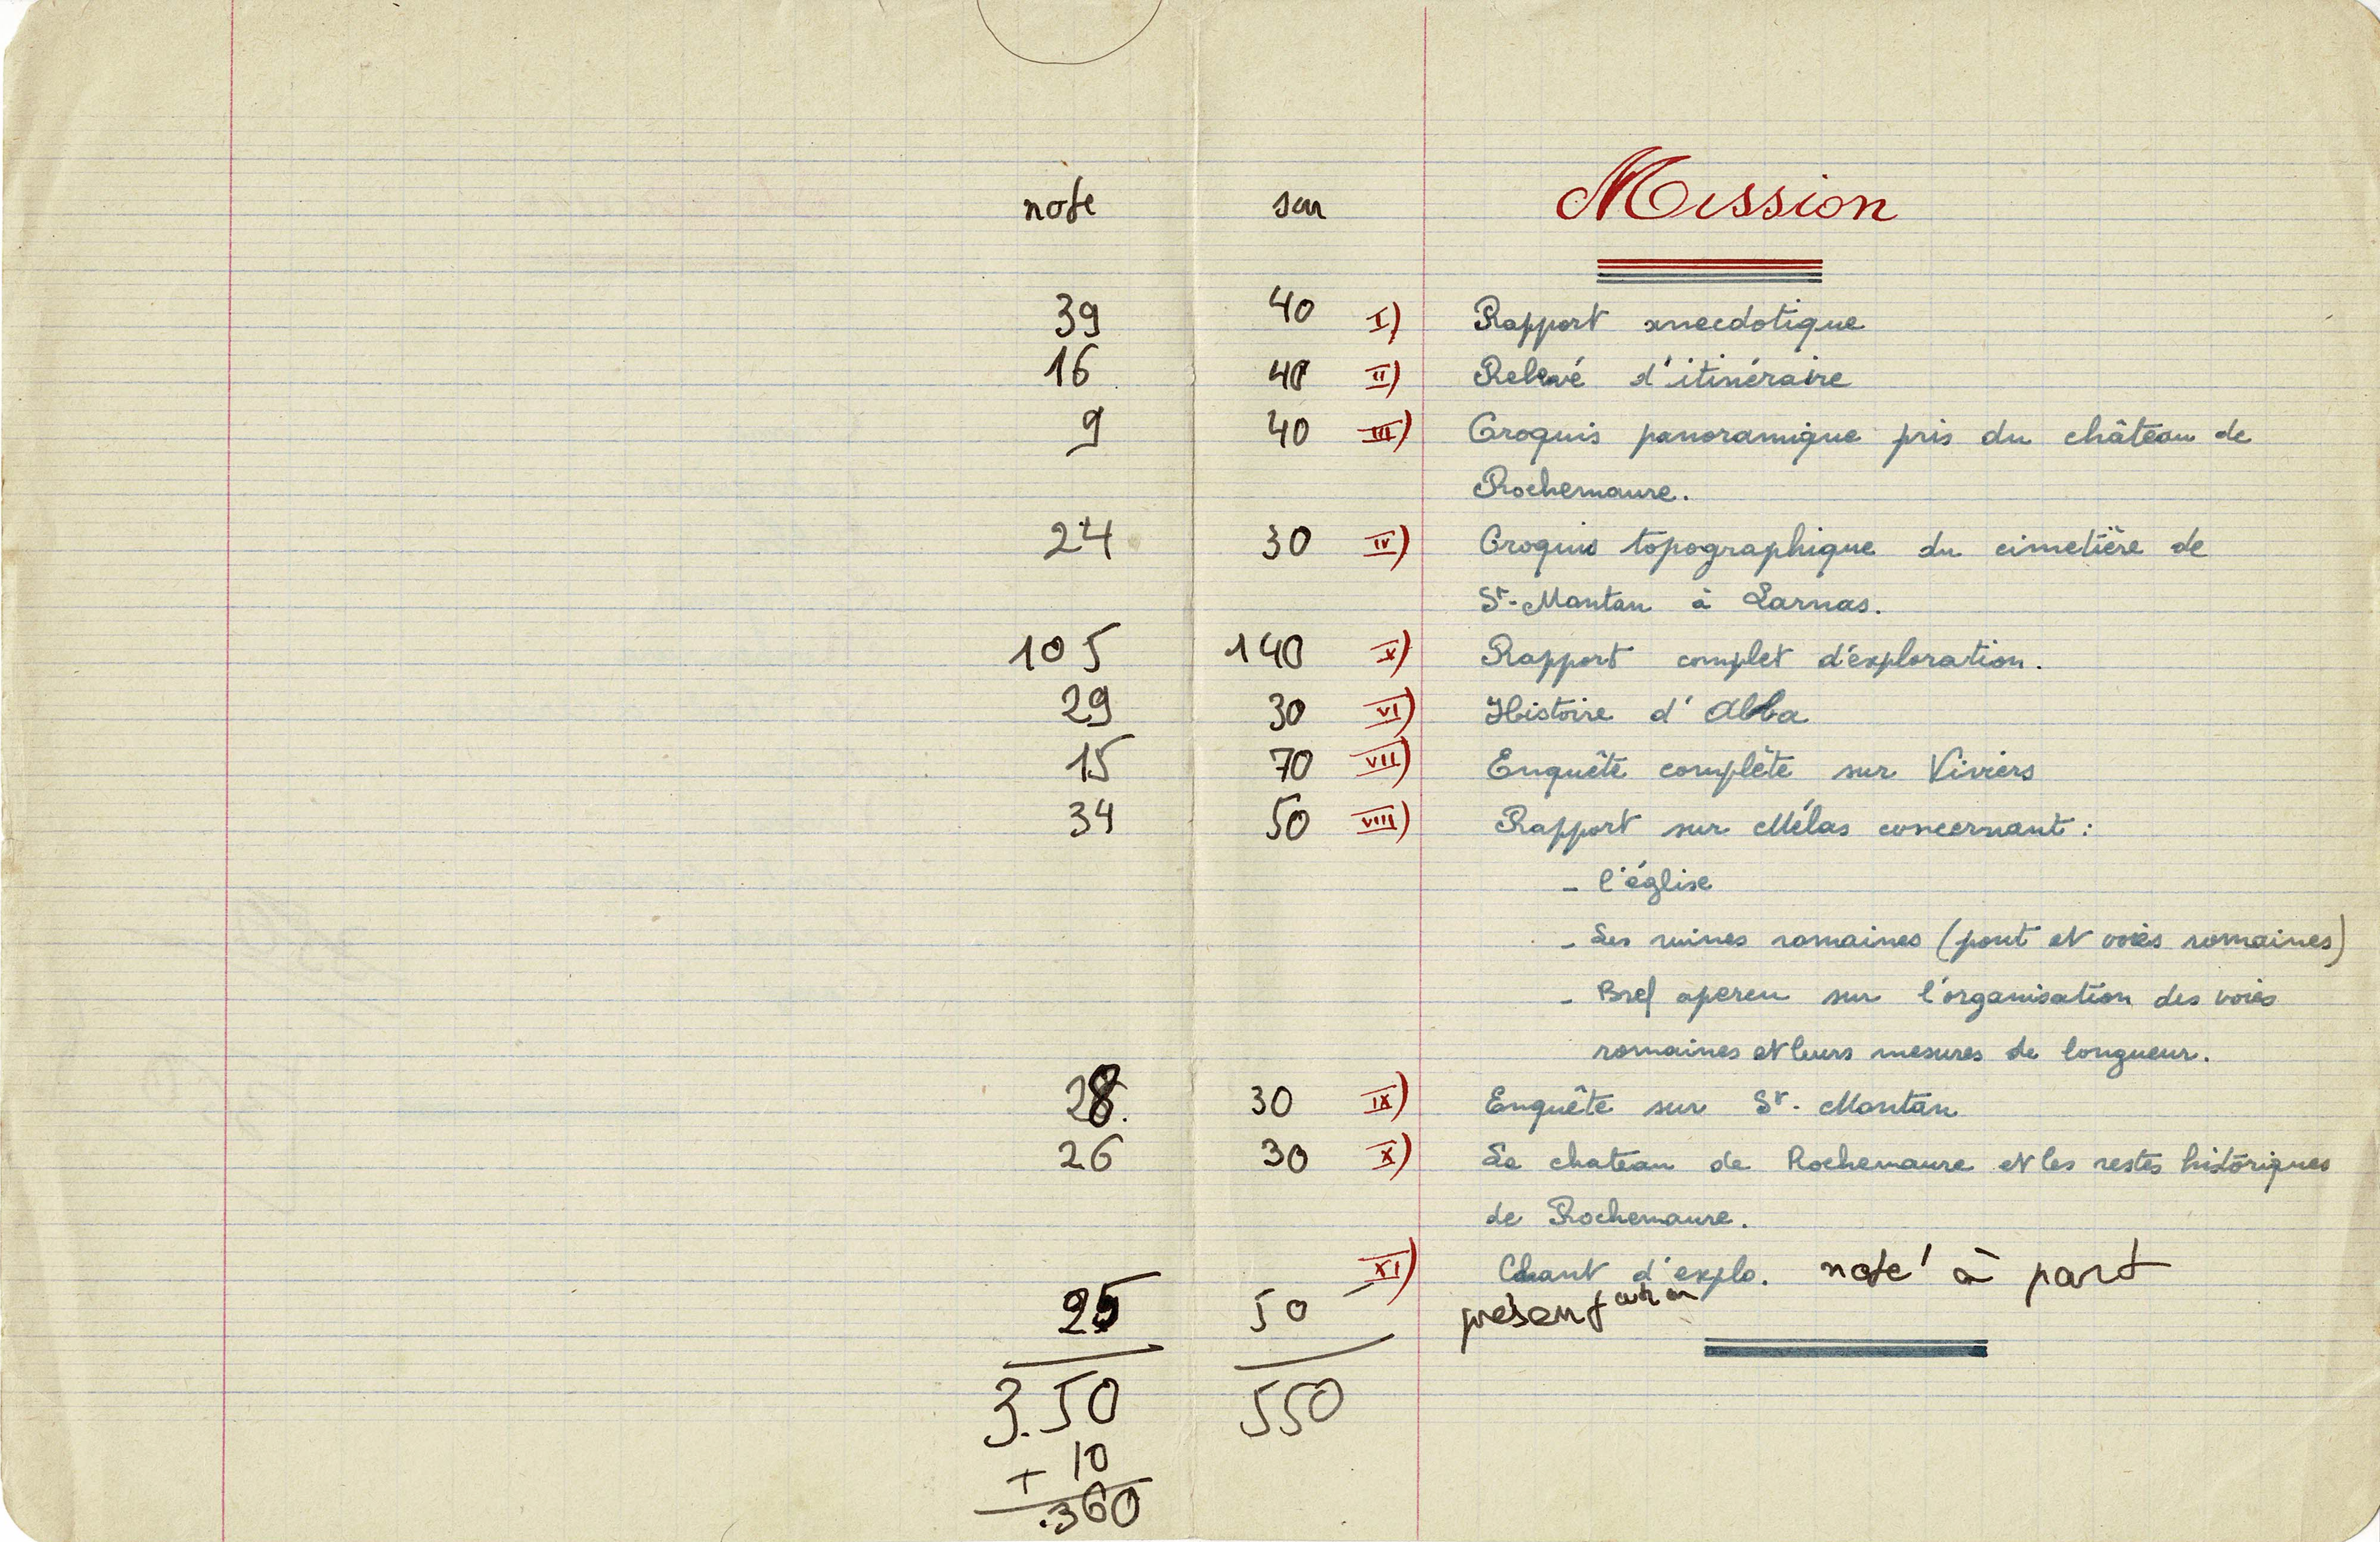 note sur Mission
39 40 I) Rapport anecdotique
16 40 II) Relevé d'itinéraire
9 40 III) Croquis panoramique pris du château de
Rochemaure.
24 30 IV) Croquis topographique du cimetière de
St-Montan à Larnas.
105 140 V) Rapport complet d'exploration.
29 30 VI) Histoire d'Abba
15 70 VII) Enquête complète sur Viviers
34 50 VIII) Rapport sur Mélas concernant :
- l'église
- Les ruines romaines (pont et voies romaines)
- Bref apercu sur l'organisation des voies
romaines et leurs mesures de longueur.
28. 30 IX) Enquête sur St. Montan
26 30 X) Le chateau de Rochemaure et les restes historiques
de Rochemaure.
XI) Chant d'explo. noté à part
25 50 présentation
3.50 550
+ 10
.360